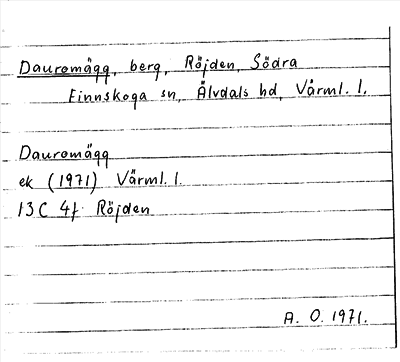 Dauromägg, berg, Röjden, Södra
Finnskoga sn, Älvdals hd, Värml. l.
Dauromägg
ek (1971) Värml. l.
13C 4f Röjden
A. O. 1971.